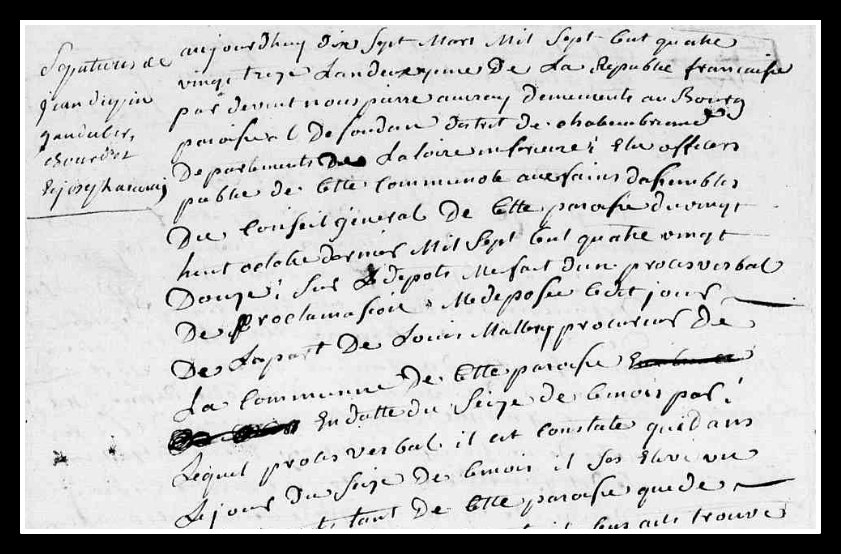 Sepultures de
jean
gandubert
Bourdet
aujourdhuy dix Sept Mars Mil Sept Cent quatre
vingt treze Landeuxieme De La Republic francaise
par devent nous pierre demements au Bourg
paroisse De Soudan distrit de chatembriand
Departements De La loire inferieure; Elu officiers
public de Cette Commune
Du Conseil general De Cette paroise du vingt
huit octobre dernier Mil Sept Cent quatre vingt
Douze; Sur Le depots Me fait dun proces verbal
De proclamasion, Me depose Cedit jours
De Lapart De Louis Mallory procureur De
La Commune De Cette paroise
En datte du Seize de Cemois par;
Lequel proces verbal il est constate quedans
Lejours Du Seize de Cemois il
tant De Cette paroise que de
trouve